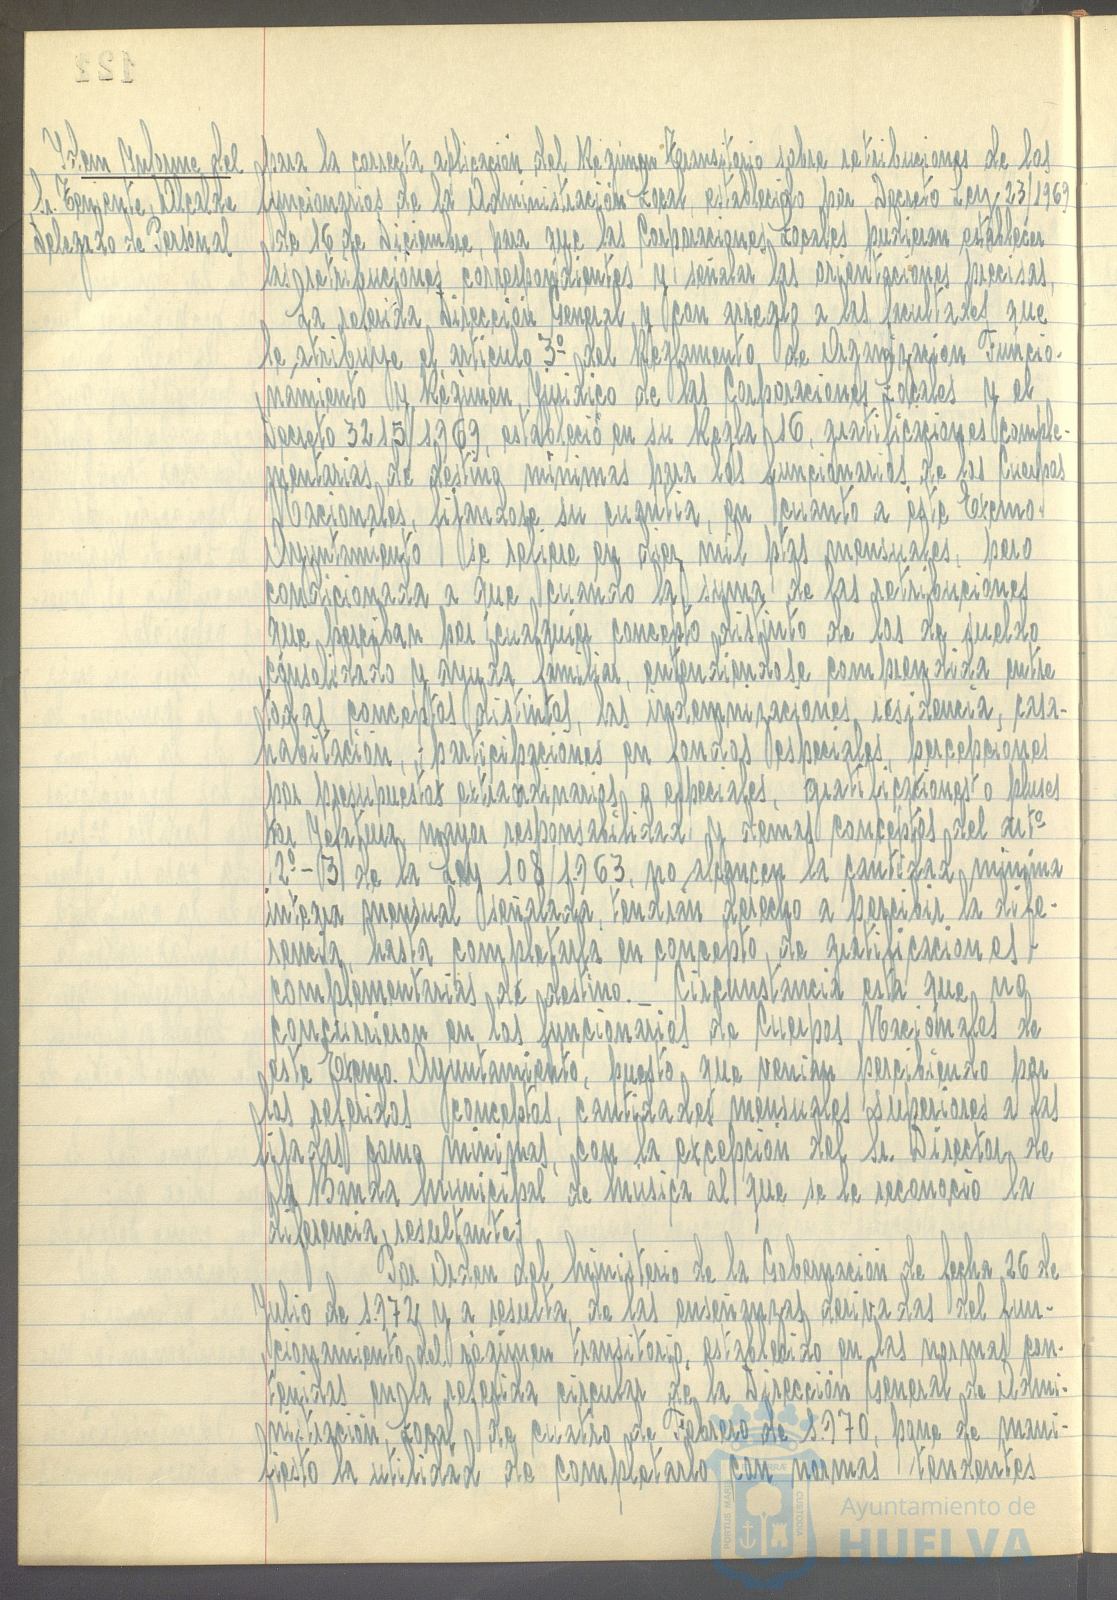 122
Idem Informe del
Sr. Teniente Alcalde
Delegado de Personal
para la correcta aplicación del Régimen Transitorio sobre retribuciones de los
funcionarios de la Administración Local, establecido por Decreto Ley 23/1969
de 16 de Diciembre, para que las Corporaciones Locales pudieran establecer
las retribuciones correspondientes y señalar las orientaciones precisas,
La referida Dirección General y con arreglo a las facultades que
le atribuye el artículo 3º del Reglamento de Organización Funcio-
namiento y Régimen Jurídico de las Corporaciones Locales y el
Decreto 3215/1.969, estableció en su Regla 16, gratificaciones comple-
mentarias de destino mínimas para los funcionarios de los Cuerpos
Nacionales, fijándose su cuantía, en cuanto a éste Excmo.
Ayuntamiento se refiere en diez mil ptas mensuales, pero
condicionada a que cuando la suma de las retribuciones
que perciban por cualquier concepto distinto de los de sueldo
consolidado y ayuda familiar, entendiendose comprendida entre
tales conceptos distintos, las indemnizaciones residencia, casa-
habitación, participaciones en fondos especiales, percepciones
por presupuestos extraordinarios o especiales, gratificaciones o pluses
por Jefatura, mayor responsabilidad y demas conceptos del artº
2º-3 de la Ley 108/1.963, no alcancen la cantidad mínima
íntegra mensual señalada, tendran derecho a percibir la dife-
rencia, hasta completarla en concepto de gratificaciones
complementarias de destino._ Circunstancia esta que no
concurrieron en los funcionarios de Cuerpos Nacionales de
este Excmo. Ayuntamiento, puesto que venian percibiendo por
los referidos conceptos, cantidades mensuales superiores a las
fijadas como minimas, con la excepción del Sr. Director de
la Banda Municipal de Musica al que se le reconoció la
diferencia resultante.
Por Orden del Ministerio de la Gobernación de fecha 26 de
Julio de 1.972, y a resulta de las enseñanzas derivadas del fun-
cionamiento del régimen transitorio, establecido en las normas con-
tenidas en la referida circular de la Dirección General de Admi-
nistración Local de cuatro de Febrero de 1.970, pone de mani-
fiesto la utilidad de completarlo con normas tendentes
PORTUS MARIS
TERRAE
CUSTODIA
Ayuntamiento de
HUELVA